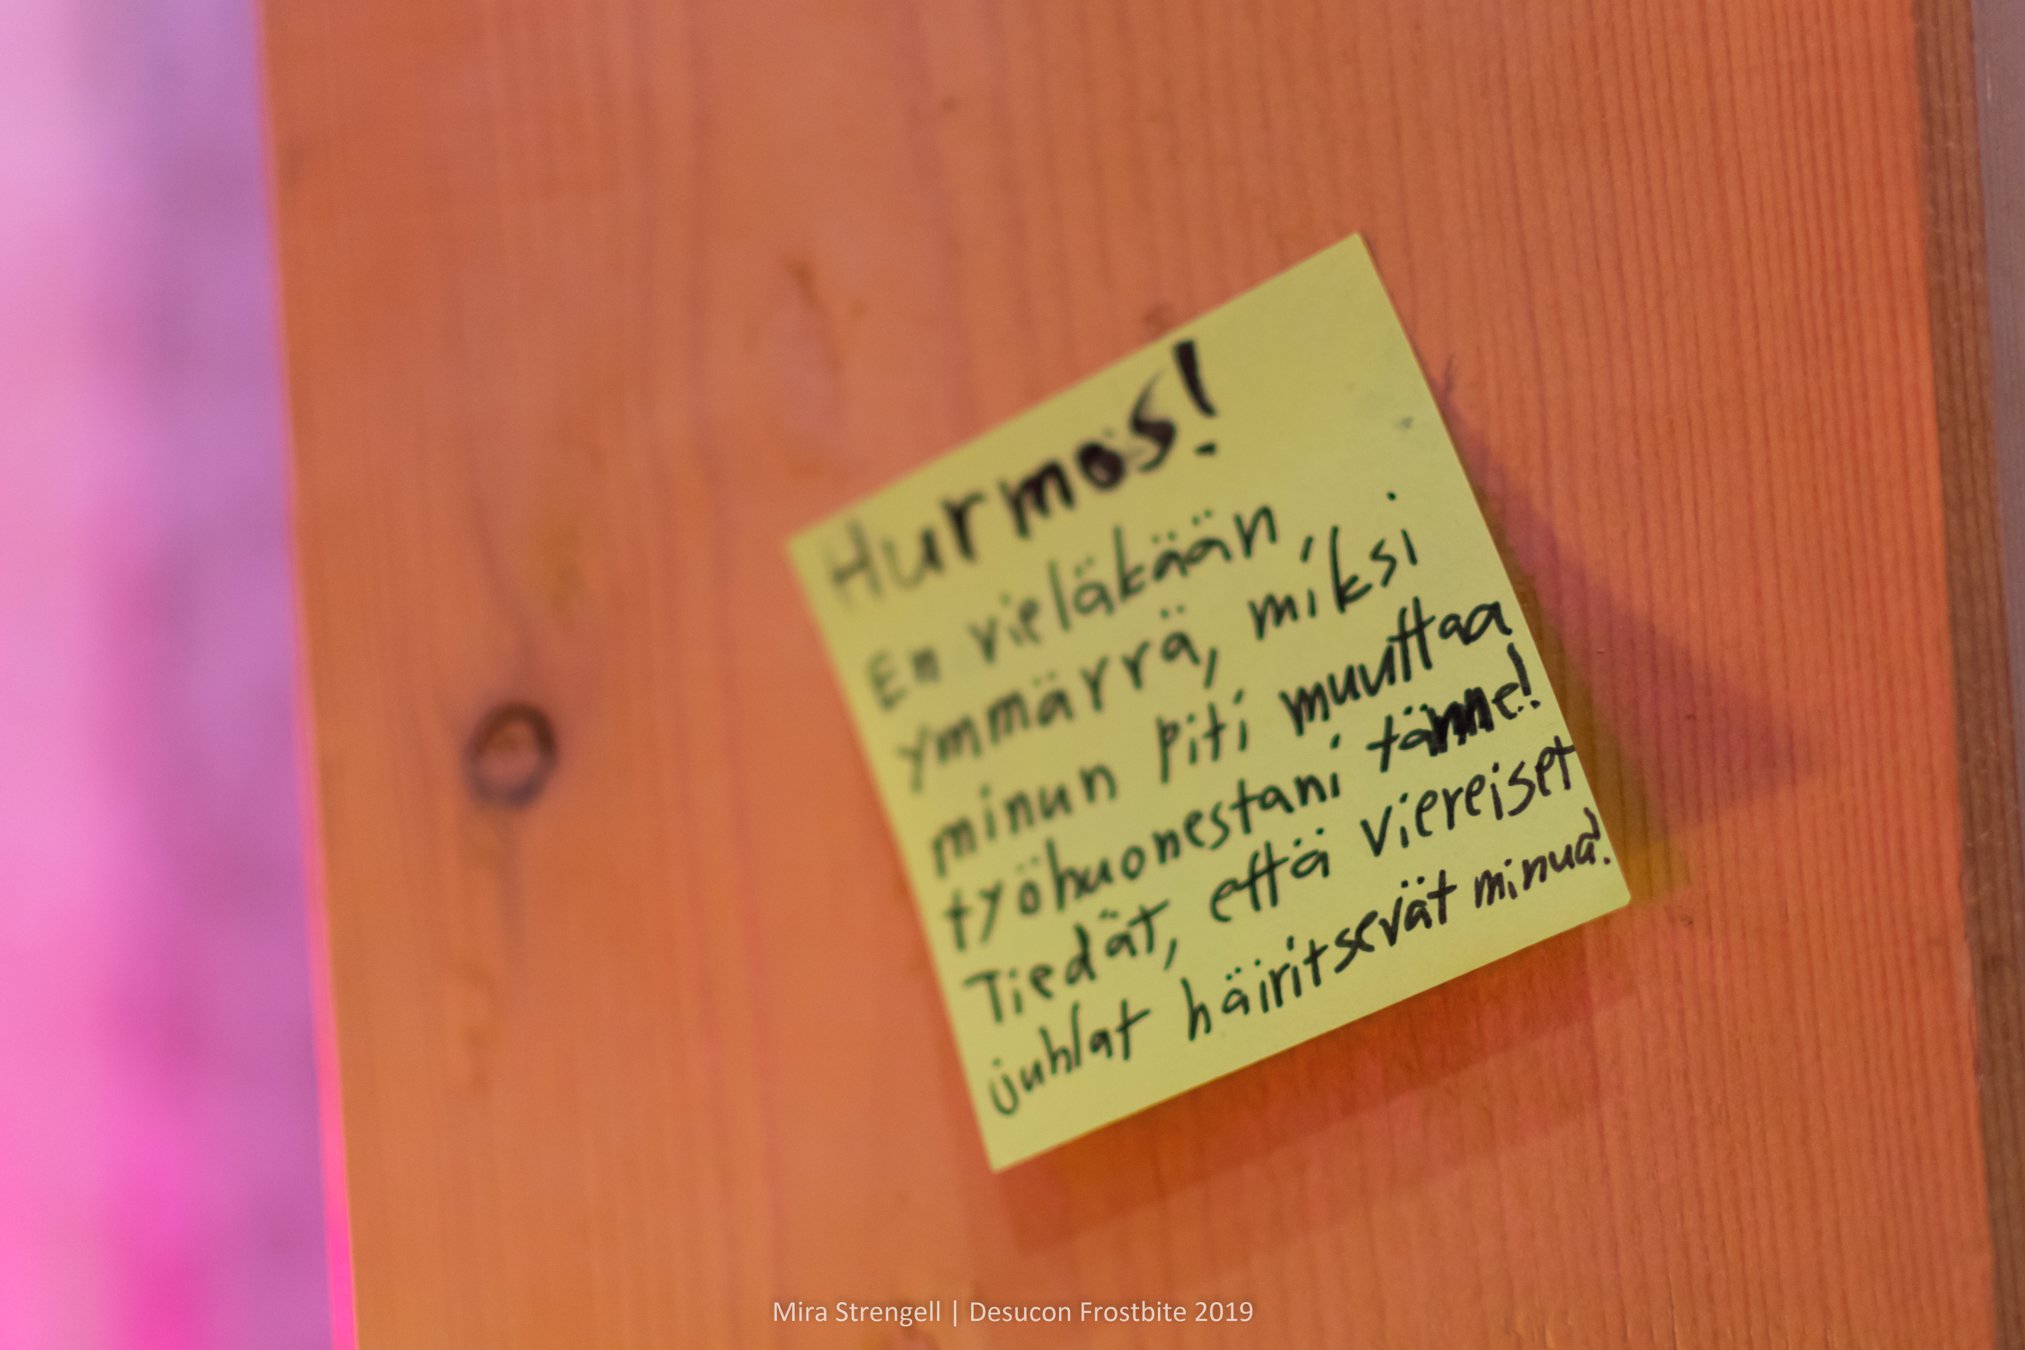 Hurmos!
En vieläkään,
ymmärrä, miksi
minun piti muuttaa
työhuonestani tänne!
Tiedät, että viereiset
juhlat häiritsevät minua.
Mira Strengell | Desucon Frostbite 2019